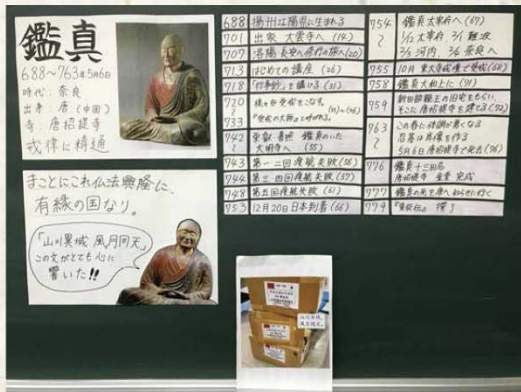 鑑真
688～763年5月6日
時代：奈良
出身：唐（中国）
寺：唐招提寺
戒律に精通
まことにこれ仏法興隆に、
有縁の国なり。
「山川異域 風月同天」
この文がとても心に
響いた!!
688 揚州江陽県に生まれる
701 出家 大雲寺へ (14)
707 洛陽 長安へ修行の旅へ (20)
713 はじめての講座 (26)
718 を講じる (31)
720
733
742
大明寺へ (55)
743 第一 二回渡航失敗 (56)
744 第三 四回渡航失敗 (57)
748 第五回渡航失敗 (61)
753 12月20日日本到着 (66)
754 鑑真太宰府へ (67)
～ 1/12 太宰府 2/1 難波
2/3 河内 2/4 奈良へ
755
758 鑑真大和上に (71)
759 新田部親王の旧宅をもらい、
そこに唐招提寺を建てる (72)
763 この春に体調が悪くなる
～ 忍基は肖像を作る
5月6日 唐招提寺で死去 (76)
776 鑑真十三回忌
唐招提寺 金堂 完成
777 鑑真の死を唐へ知らせに行く
779
山川异域，
风月同天。